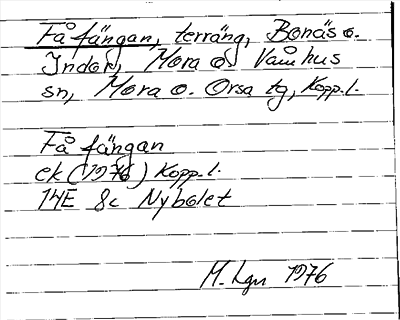 Få fängan, terräng, Bonäs o.
Indor, Mora o. Våmhus
sn, Mora o. Orsa tg, Kopp.l.
Få fängan
ek (1976) Kopp.l.
14E 8c Nybolet
M. Lgn 1976